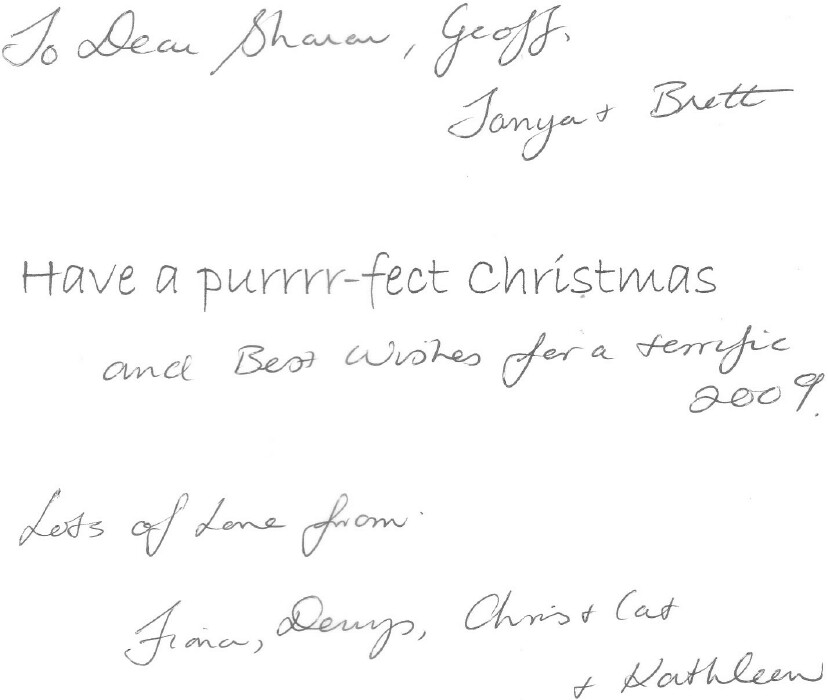 To Dear Sharon, Geoff,
Tanya + Brett
Have a purrrr-fect Christmas
and Best Wishes for a terrific
2009.
Lots of Love from
Fiona, Denys, Chris + Cat
+ Kathleen